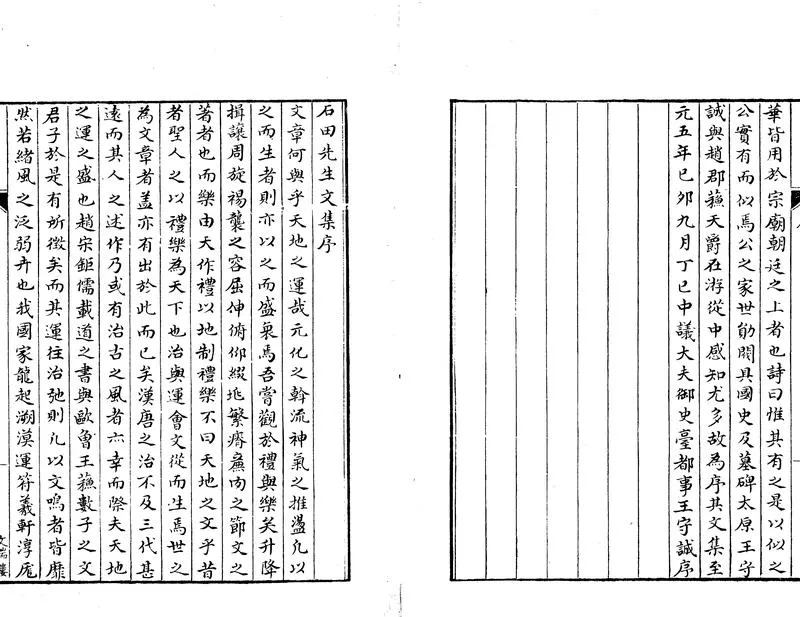 華皆用於宗廟朝廷之上者也詩曰惟其有之是以似之
公實有而似焉公之家世勛閥具國史及墓碑太原王守
誠與趙郡蘓天爵在游從中感知尤多故為序其文集至
元五年己夘九月丁巳中議大夫御史臺都事王守誠序
石田先生文集序
文章何與乎天地之運哉元化之斡流神氣之推盪凢以
之而生者則亦以之而盛衰焉吾嘗觀於禮與樂矣升降
揖讓周旋裼襲之容屈伸俯仰綴兆繁瘠廉肉之節文之
著者也而樂由天作禮以地制禮樂不曰天地之文乎昔
者聖人之以禮樂為天下也治與運會文從而生焉世之
為文章者盖亦有出於此而已矣漢唐之治不及三代甚
遠而其人之述作乃或有治古之風者亦幸而際夫天地
之運之盛也趙宋鉅儒載道之書與歐魯王蘓數子之文
君子於是有所徵矣而其運往治弛則凢以文鳴者皆靡
然若緒風之泛弱卉也我國家龍起溯漠運符羲軒淳厖
文瑞樓